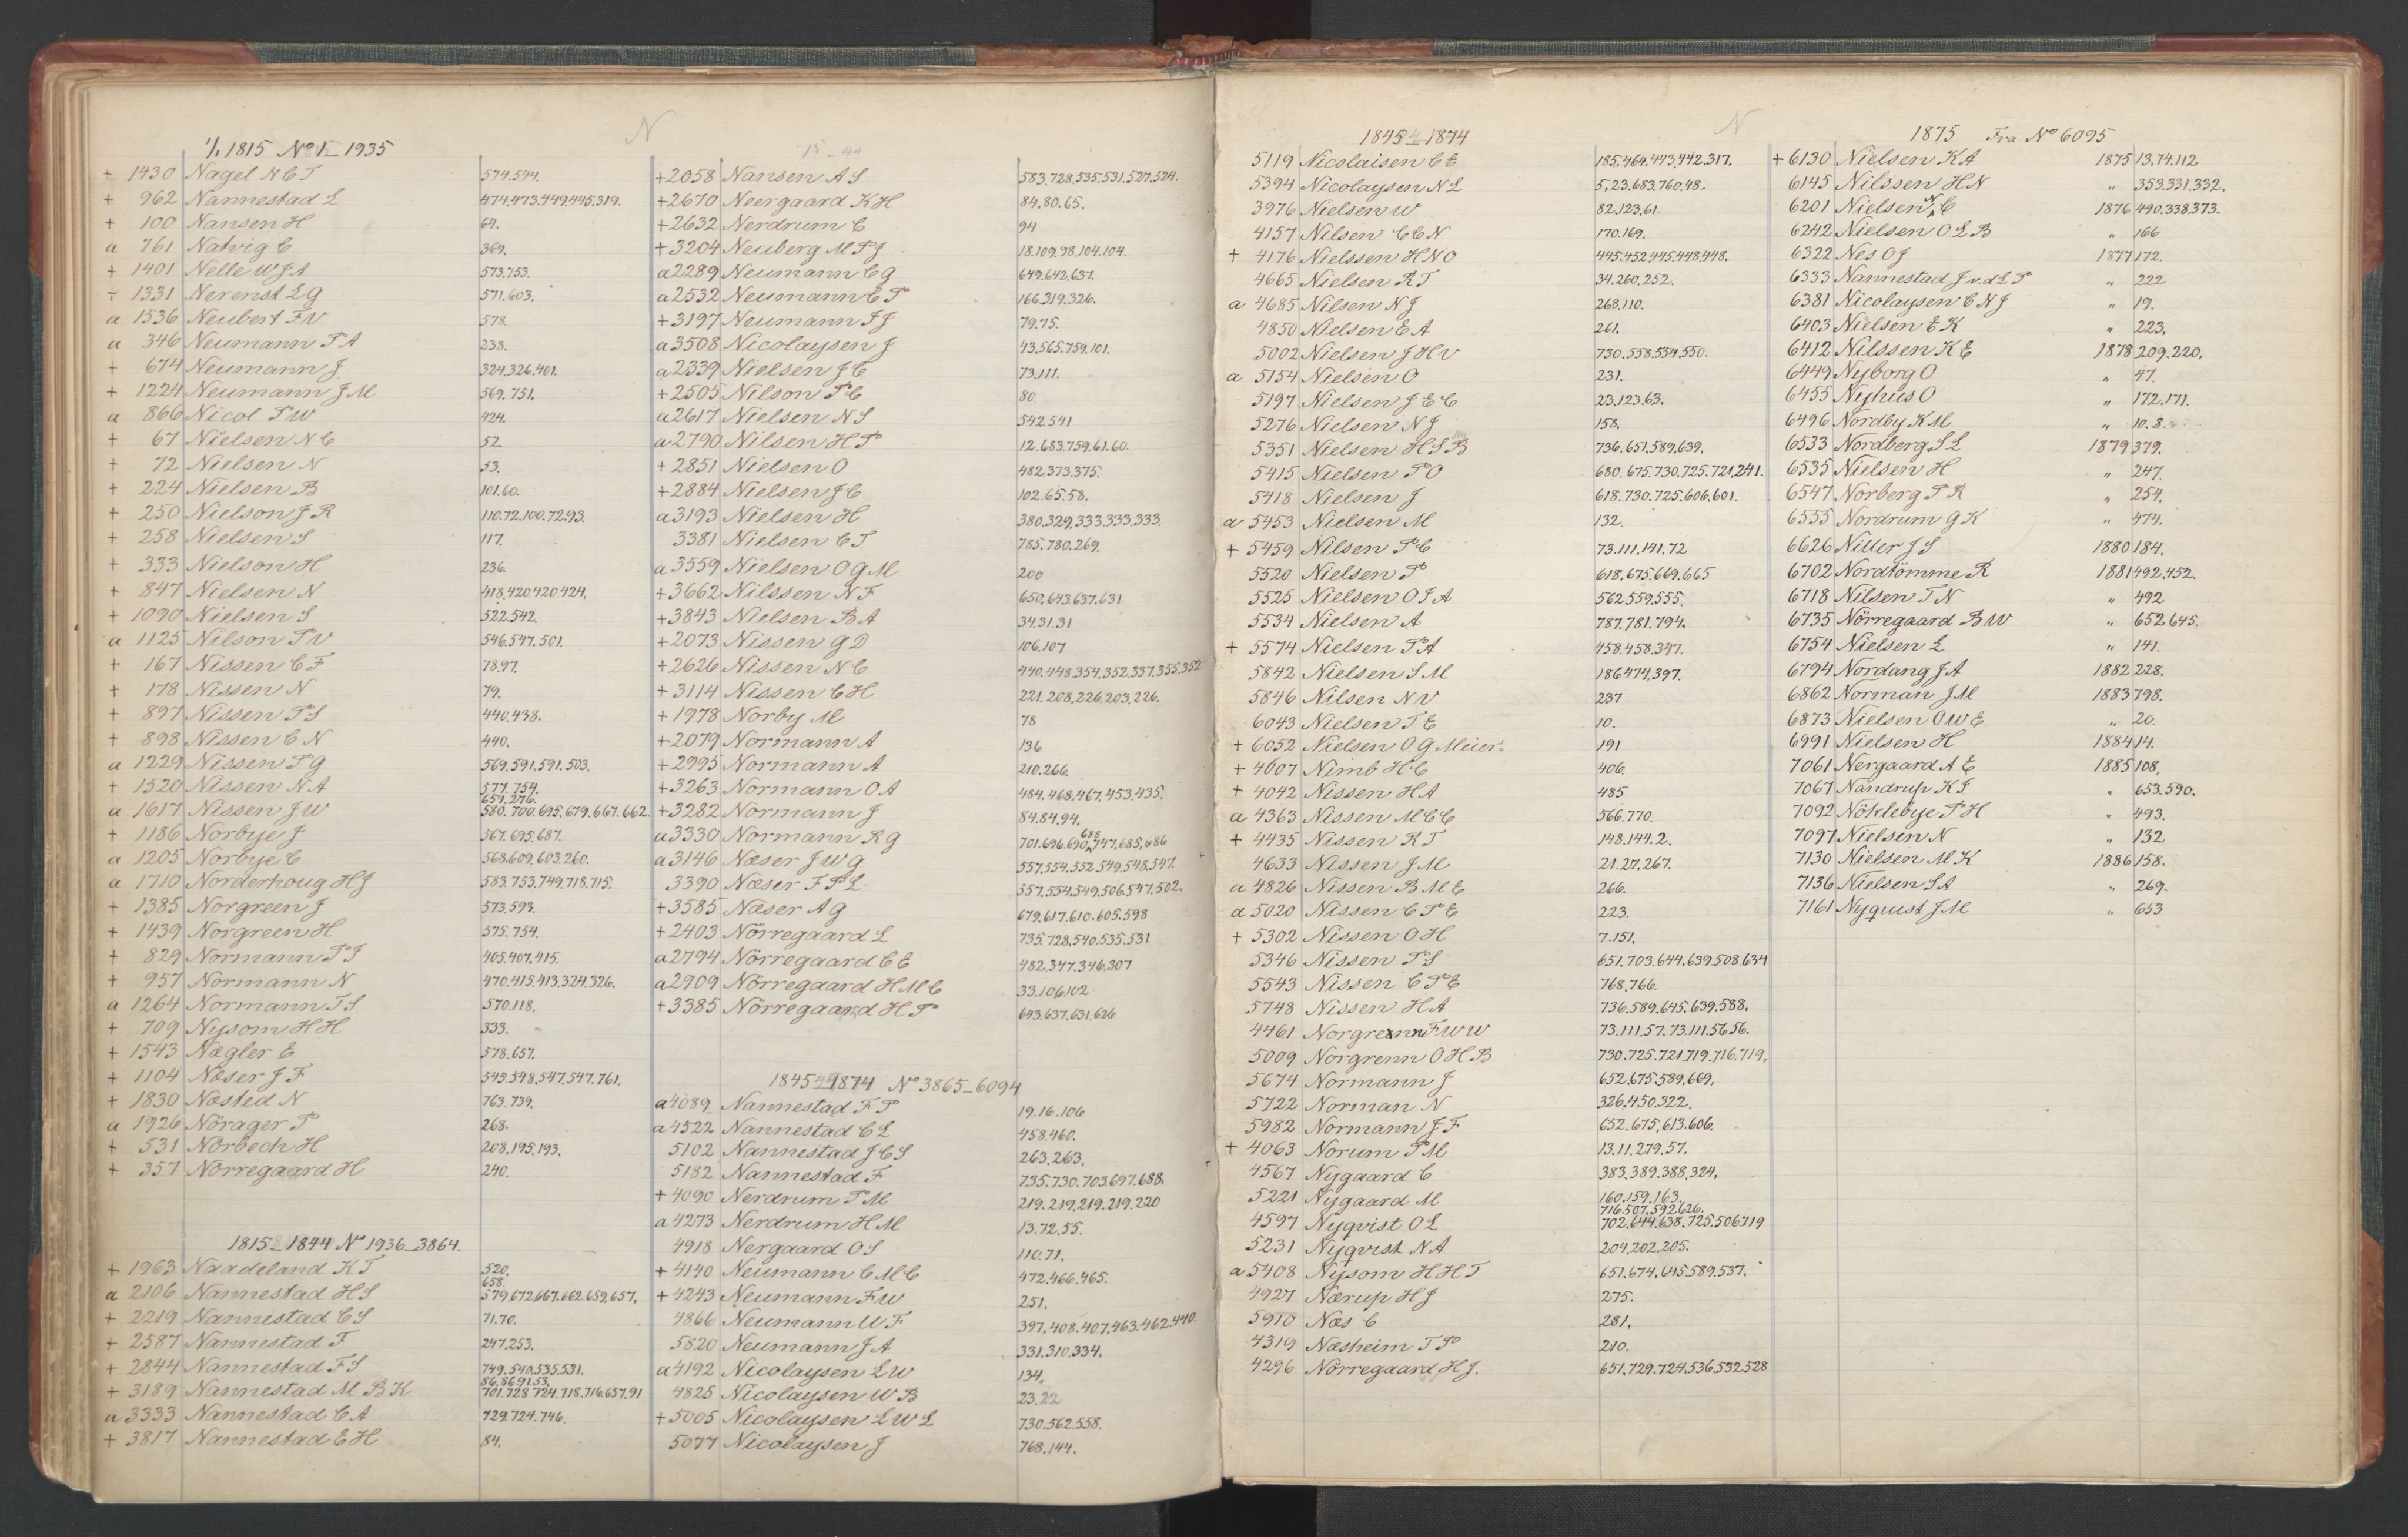 N
1/1 1815 No 1 _ 1935
+ 1430 Nagel N C T 574.544.
+ 962 Nannestad L 474.473.449.445.319.
+ 100 Nansen H 64.
a 761 Natvig C 369.
+ 1401 Nelle W J A 573.753.
+ 1331 Nerenst L G 571.603.
a 1536 Neubert F V 578
a 346 Neumann P A 238.
+ 674 Neumann J 324.326.401.
+ 1224 Neumann J M 569.751.
a 866 Nicol P W 424.
+ 67 Nielsen N C 52.
+ 72 Nielsen N 53.
+ 224 Nielsen B 101.60.
+ 250 Nielson J R 110.72.100.72.93.
+ 258 Nielsen S 117.
+ 333 Nielson H 236.
+ 847 Nielsen N 418.420.420.424.
+ 1090 Nielsen S 522.542.
a 1125 Nilson P V 546.547.501.
+ 167 Nissen C F 78.97.
+ 178 Nissen N 79.
+ 897 Nissen P S 440.438.
+ 898 Nissen C N 440.
a 1229 Nissen P G 569.591.591.503.
+ 1520 Nissen N A 577.754.
659.276.
a 1617 Nissen J W 580.700.695.679.667.662.
+ 1186 Norbye J 567.695.687.
a 1205 Norbye C 568.609.603.260.
a 1710 Norderhoug H J 583.753.749.718.715.
+ 1385 Norgreen J 573.593.
+ 1439 Norgreen H 575.754.
+ 829 Normann P S 405.407.415.
+ 957 Normann N 470.415.413.324.326.
a 1264 Normann T S 570.118.
+ 709 Nysom H H 333.
+ 1543 Nægler E 578.657.
+ 1104 Næser J F 549.548.547.547.761.
+ 1830 Næsted N 763.739.
a 1926 Nörager P 268.
+ 531 Nörbech H 208.195.193.
+ 357 Nörregaard H 240.
1815_1844 No 1936_3864.
+ 1963 Naadeland K T 520.
658.
a 2106 Nannestad H S 579.672.667.662.659.657.
+ 2219 Nannestad C S 71.70.
+ 2587 Nannestad T 247.253.
+ 2844 Nannestad F S 749.540.535.531.
86.86.91.53.
+ 3189 Nannestad M B K 701.728.724.718.716.657.91
a 3333 Nannestad C A 729.724.746.
+ 3817 Nannestad E H 84.
15_44
+2058 Nansen A S 583.728.535.531.527.524.
+2670 Neergaard K H 84.80.65.
+2632 Nerdrum C 94
+3204 Neuberg M P J 18.109.98.104.104.
a2289 Neumann C G 649.642.637.
a2532 Neumann C P 166.319.326.
+3197 Neumann I J 79.75.
a3508 Nicolaysen J 43.565.759.101.
a2339 Nielsen J C 73.111.
+2505 Nilson P C 80
a2617 Nielsen N S 542.541
a2790 Nilsen H P 12.683.759.61.60.
+2851 Nielsen O 482.373.375.
+2884 Nielsen J C 102.65.58.
a3193 Nielsen H 380.329.333.333.333.
3381 Nielsen C T 785.780.269.
a3559 Nielsen O G M 200
+3662 Nilssen N F 650.643.637.631
+3843 Nielsen B A 34.31.31
+2073 Nissen G D 106.107
+2626 Nissen N C 440.448.354.352.337.355.352
+3114 Nissen C H 221.208.226.203.226.
+1978 Norby M 78
+2079 Normann A 136
+2995 Normann A 210.266.
+3263 Normann O A 484.468.467.453.435.
+3282 Normann J 84.84.94.
688
a3330 Normann R G 701.696.690.747.685.686
a3146 Næser J W G 557.554.552.549.548.547.
3390 Næser F P L 557.554.549.506.547.502.
+3585 Næser A G 679.617.610.605.598
+2403 Nörregaard L 735.728.540.535.531
a2794 Nörregaard C E 482.347.346.307
a2909 Nörregaard H M C 33.106.102
+3385 Nörregaard H P 643.637.631.626
1845_1874 No 3865_6094
a4089 Nannestad F P 19.16.106
a4522 Nannestad C L 458.460.
5102 Nannestad J C S 263.263.
5182 Nannestad F 735.730.703.697.688.
+4090 Nerdrum P M 219.219.219.219.220
a4273 Nerdrum H M 13.72.55.
4918 Nergaard O S 110.71.
+4140 Neumann C M C 472.466.465.
+4243 Neumann F W 251.
4866 Neumann U F 397.408.407.463.462.440.
5820 Neumann J A 331.310.334.
a4192 Nicolaysen L W 134.
4825 Nicolaysen W B 23.22
+5005 Nicolaysen L W L 730.562.558.
5077 Nicolaysen J 768.144.
N
1845_1874
5119 Nicolaisen C E 185.464.443.442.317.
5394 Nicolaysen N L 5.23.683.760.48.
3976 Nielsen W 82.123.61.
4157 Nilsen C C N 170.169.
+ 4176 Nielssen H N O 445.452.445.448.448.
4665 Nielsen R T 34.260.252.
a 4685 Nilsen N J 268.110.
4850 Nielsen E A 261.
5002 Nielsen J H V 730.558.554.550.
a 5154 Nielsen O 231.
5197 Nielsen J E C 23.123.63.
5276 Nielsen N J 158.
5351 Nielsen H S B 736.651.589.639.
5415 Nielsen P O 680.675.730.725.721.241.
5418 Nielsen J 618.730.725.606.601.
a 5453 Nielsen M 132.
+ 5459 Nilsen P C 73.111.141.72
5520 Nielsen P 618.675.669.665
5525 Nielsen O I A 562.559.555.
5534 Nielsen A 787.781.794.
+ 5574 Nielsen P A 458.458.347.
5842 Nielsen S M 186.474.397.
5846 Nilsen N V 237
6043 Nielsen T E 10.
+ 6052 Nielsen O G Meier 191
+ 4007 Nimb H C 406.
+ 4042 Nissen H A 485
a 4363 Nissen M C C 566.770.
+ 4435 Nissen R T 148.144.2.
4633 Nissen J M 21.27.267.
a 4826 Nissen B M E 266.
a 5020 Nissen C P E 223.
+ 5302 Nissen O H 7.151.
5346 Nissen P S 651.703.644.639.508.634
5543 Nissen C P E 768.766.
5748 Nissen H A 736.589.645.639.588.
4461 Norgrenn F W W 73.111.57.73.111.56.56.
5009 Norgrenn O H B 730.725.721.719.716.719.
5674 Normann J 652.675.589.669.
5722 Norman N 326.450.322.
5982 Normann J F 652.675.613.606.
+ 4063 Norum P M 13.11.279.57.
4567 Nygaard C 383.389.388.324.
5221 Nygaard M 160.159.163.
716.507.592.626.
4597 Nyqvist O L 702.644.638.725.506.719
5231 Nyqvist N A 204.202.205.
a 5408 Nysom H H T 651.674.645.589.537.
4927 Nærup H J 275.
5970 Næs C 281.
4319 Næsheim T P 210.
4296 Nörregaard H J. 651.729.724.536.532.528
1875 Fra No 6095
+ 6130 Nielsen K A 1875 13.74.112
6145 Nilssen H N " 353.331.332.
6201 Nielsen N C 1876 490.338.373.
6242 Nielsen O L B " 166
6322 Nes O J 1877 172.
6333 Nannestad J v.d L P " 222
6381 Nicolaysen C N J " 19.
6403 Nielsen E K " 223.
6412 Nilssen K E 1878 209.220.
6449 Nyborg O " 47.
6455 Nyhus O " 172.171.
6496 Nordby K M " 10.8.
6533 Nordberg S L 1879 379.
6535 Nielsen H " 247.
6547 Norberg P R " 254.
6555 Nordrum G K " 474.
6626 Nitter J S 1880 184.
6702 Nordtömme R 1881 492.452.
6718 Nilsen T N " 492
6735 Nörregaard B W " 652.645.
6754 Nielsen L " 141.
6794 Nordang J A 1882 228.
6862 Norman J M 1883 798.
6873 Nielsen O W E " 20.
6991 Nielsen H 1884 14.
7061 Nergaard A E 1885 108.
7067 Nandrup K S " 653.590.
7092 Nöklebye P H " 493.
7097 Nielsen N " 132
7130 Nielsen M K 1886 158.
7136 Nielsen S A " 269.
7161 Nyquist J M " 653